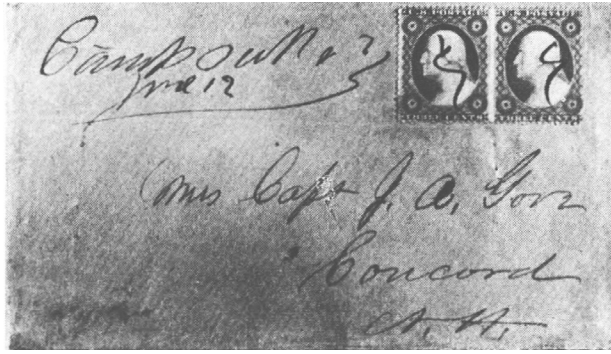 Camp
June 12
Mrs Capt J. A. Gove
Concord
N. H.